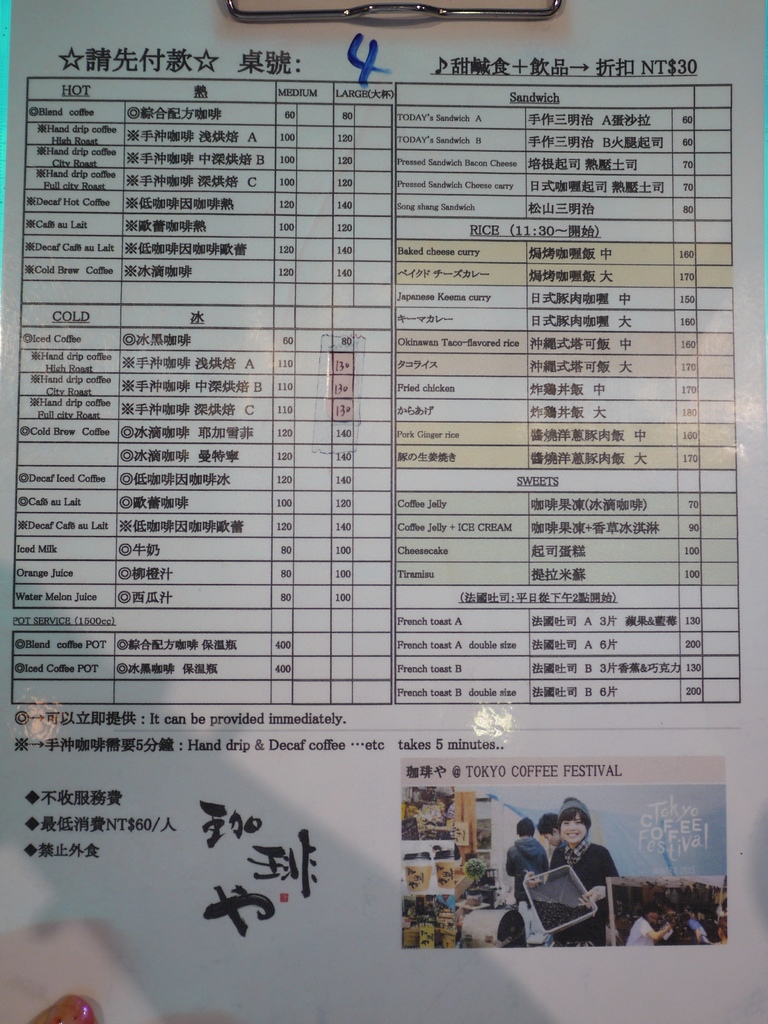 ☆請先付款☆ 桌號: 4 ♪甜鹹食+飲品→ 折扣 NT$30
HOT 熱 MEDIUM LARGE(大杯)
◎Blend coffee ◎綜合配方咖啡 60 80
※Hand drip coffee High Roast ※手沖咖啡 浅烘焙 A 100 120
※Hand drip coffee City Roast ※手沖咖啡 中深烘焙 B 100 120
※Hand drip coffee Full city Roast ※手沖咖啡 深烘焙 C 100 120
※Decaf Hot Coffee ※低咖啡因咖啡熱 120 140
※Café au Lait ※歐蕾咖啡熱 100 120
※Decaf Café au Lait ※低咖啡因咖啡歐蕾 120 140
※Cold Brew Coffee ※冰滴咖啡 120 140
COLD 冰
◎Iced Coffee ◎冰黑咖啡 60 80
※Hand drip coffee High Roast ※手沖咖啡 浅烘焙 A 110 130
※Hand drip coffee City Roast ※手沖咖啡 中深烘焙 B 110 130
※Hand drip coffee Full city Roast ※手沖咖啡 深烘焙 C 110 130
◎Cold Brew Coffee ◎冰滴咖啡 耶加雪菲 120 140
◎冰滴咖啡 曼特寧 120 140
◎Decaf Iced Coffee ◎低咖啡因咖啡冰 120 140
◎Café au Lait ◎歐蕾咖啡 100 120
※Decaf Café au Lait ※低咖啡因咖啡歐蕾 120 140
Iced Milk ◎牛奶 80 100
Orange Juice ◎柳橙汁 80 100
Water Melon Juice ◎西瓜汁 80 100
POT SERVICE (1500cc)
◎Blend coffee POT ◎綜合配方咖啡 保溫瓶 400
◎Iced Coffee POT ◎冰黑咖啡 保溫瓶 400
Sandwich
TODAY's Sandwich A 手作三明治 A蛋沙拉 60
TODAY's Sandwich B 手作三明治 B火腿起司 60
Pressed Sandwich Bacon Cheese 培根起司 熱壓土司 70
Pressed Sandwich Cheese carry 日式咖喱起司 熱壓土司 70
Song shang Sandwich 松山三明治 80
RICE (11:30～開始)
Baked cheese curry 焗烤咖喱飯 中 160
ベイクド チーズカレー 焗烤咖喱飯 大 170
Japanese Keema curry 日式豚肉咖喱 中 150
キーマカレー 日式豚肉咖喱 大 160
Okinawan Taco-flavored rice 沖繩式塔可飯 中 160
タコライス 沖繩式塔可飯 大 170
Fried chicken 炸鶏丼飯 中 170
からあげ 炸鶏丼飯 大 180
Pork Ginger rice 醬燒洋蔥豚肉飯 中 160
豚の生姜焼き 醬燒洋蔥豚肉飯 大 170
SWEETS
Coffee Jelly 咖啡果凍(冰滴咖啡) 70
Coffee Jelly + ICE CREAM 咖啡果凍+香草冰淇淋 90
Cheesecake 起司蛋糕 100
Tiramisu 提拉米蘇 100
(法國吐司:平日從下午2點開始)
French toast A 法國吐司 A 3片 蘋果&藍莓 130
French toast A double size 法國吐司 A 6片 200
French toast B 法國吐司 B 3片香蕉&巧克力 130
French toast B double size 法國吐司 B 6片 200
◎→可以立即提供 : It can be provided immediately.
※→手沖咖啡需要5分鐘 : Hand drip & Decaf coffee …etc takes 5 minutes..
◆不收服務費
◆最低消費NT$60/人
◆禁止外食
珈琲や
珈琲や @ TOKYO COFFEE FESTIVAL
Tokyo
COFFEE
Festival